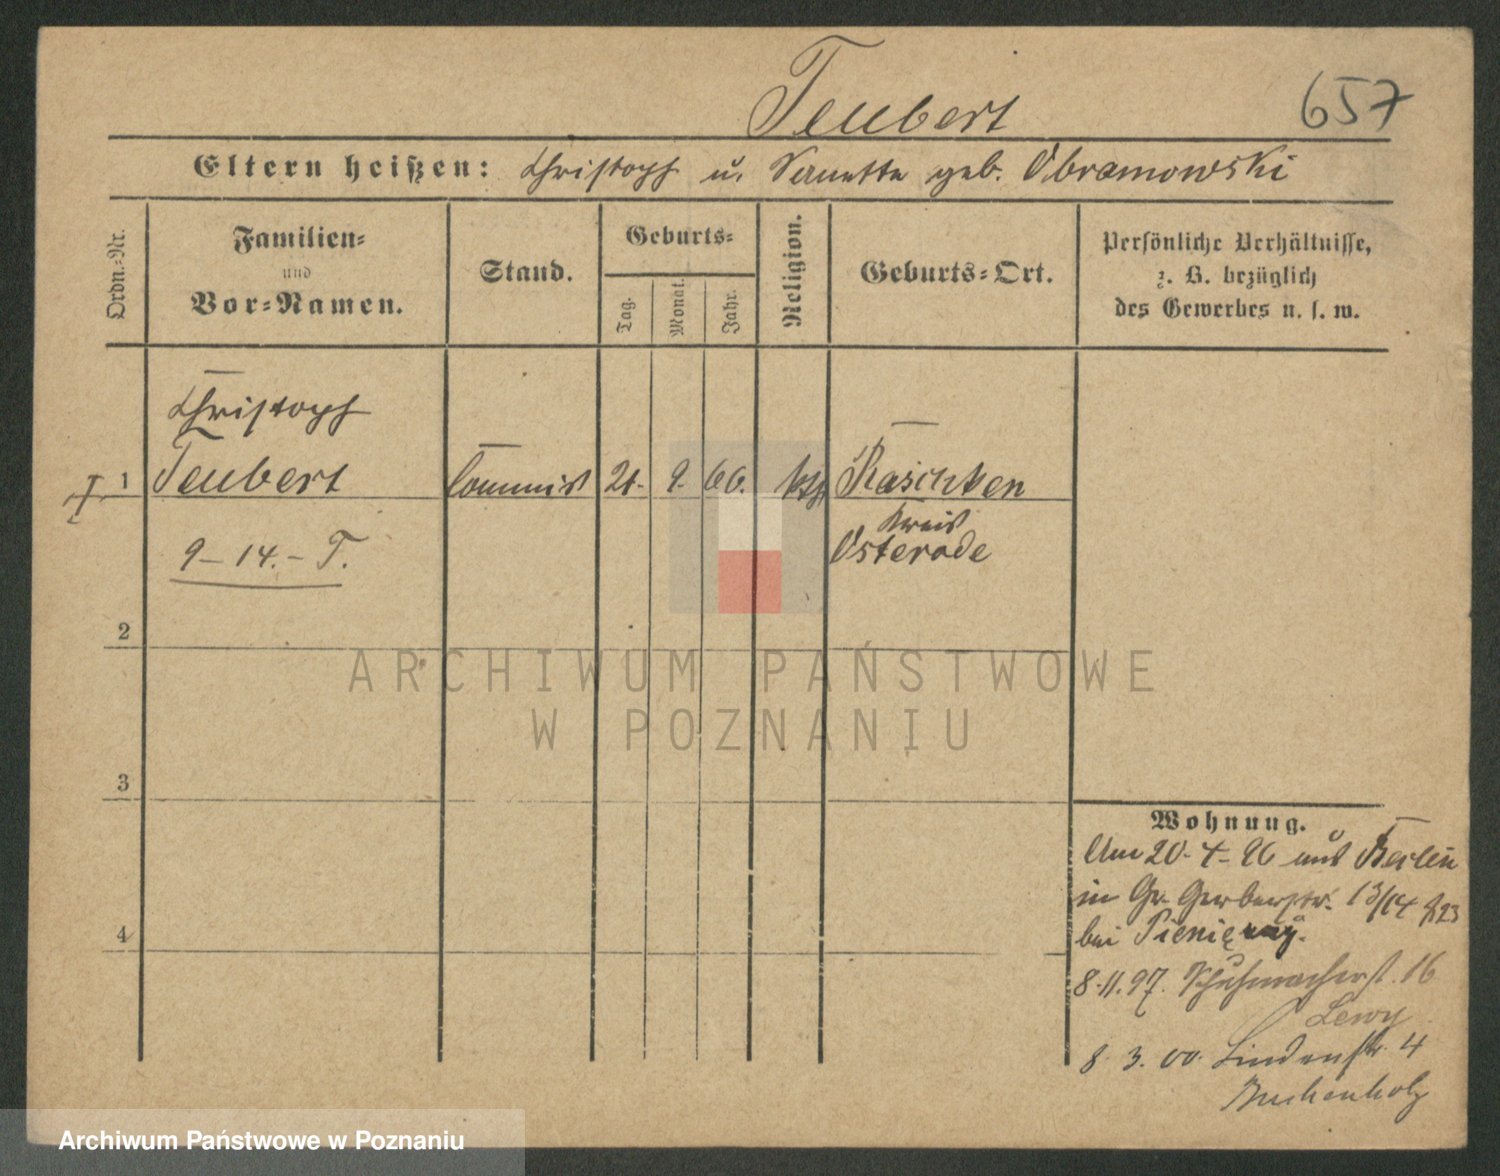 Teubert
657
Eltern heißen: Christoph u. Nanette geb. Obramowski
Ordn.-Nr.
Familien-
und
Vor-Namen.
Stand.
Geburts-
Tag.
Monat.
Jahr.
Religion.
Geburts-Ort.
Persönliche Verhältnisse,
z. B. bezüglich
des Gewerbes u. s. w.
Christoph
1 Teubert Commis 21. 9. 66. Raschken
Kreis
Osterode
9-14.- T.
2
3
4
Wohnung.
Am 20-4-96 aus Berlin
in Gr. Gerberstr. 13/14
bei
8.11.97. Schuhmacherst. 16
Lewy
8. 3. 00. Lindenstr. 4
Buchenholz
ARCHIWUM PAŃSTWOWE
W POZNANIU
Archiwum Państwowe w Poznaniu